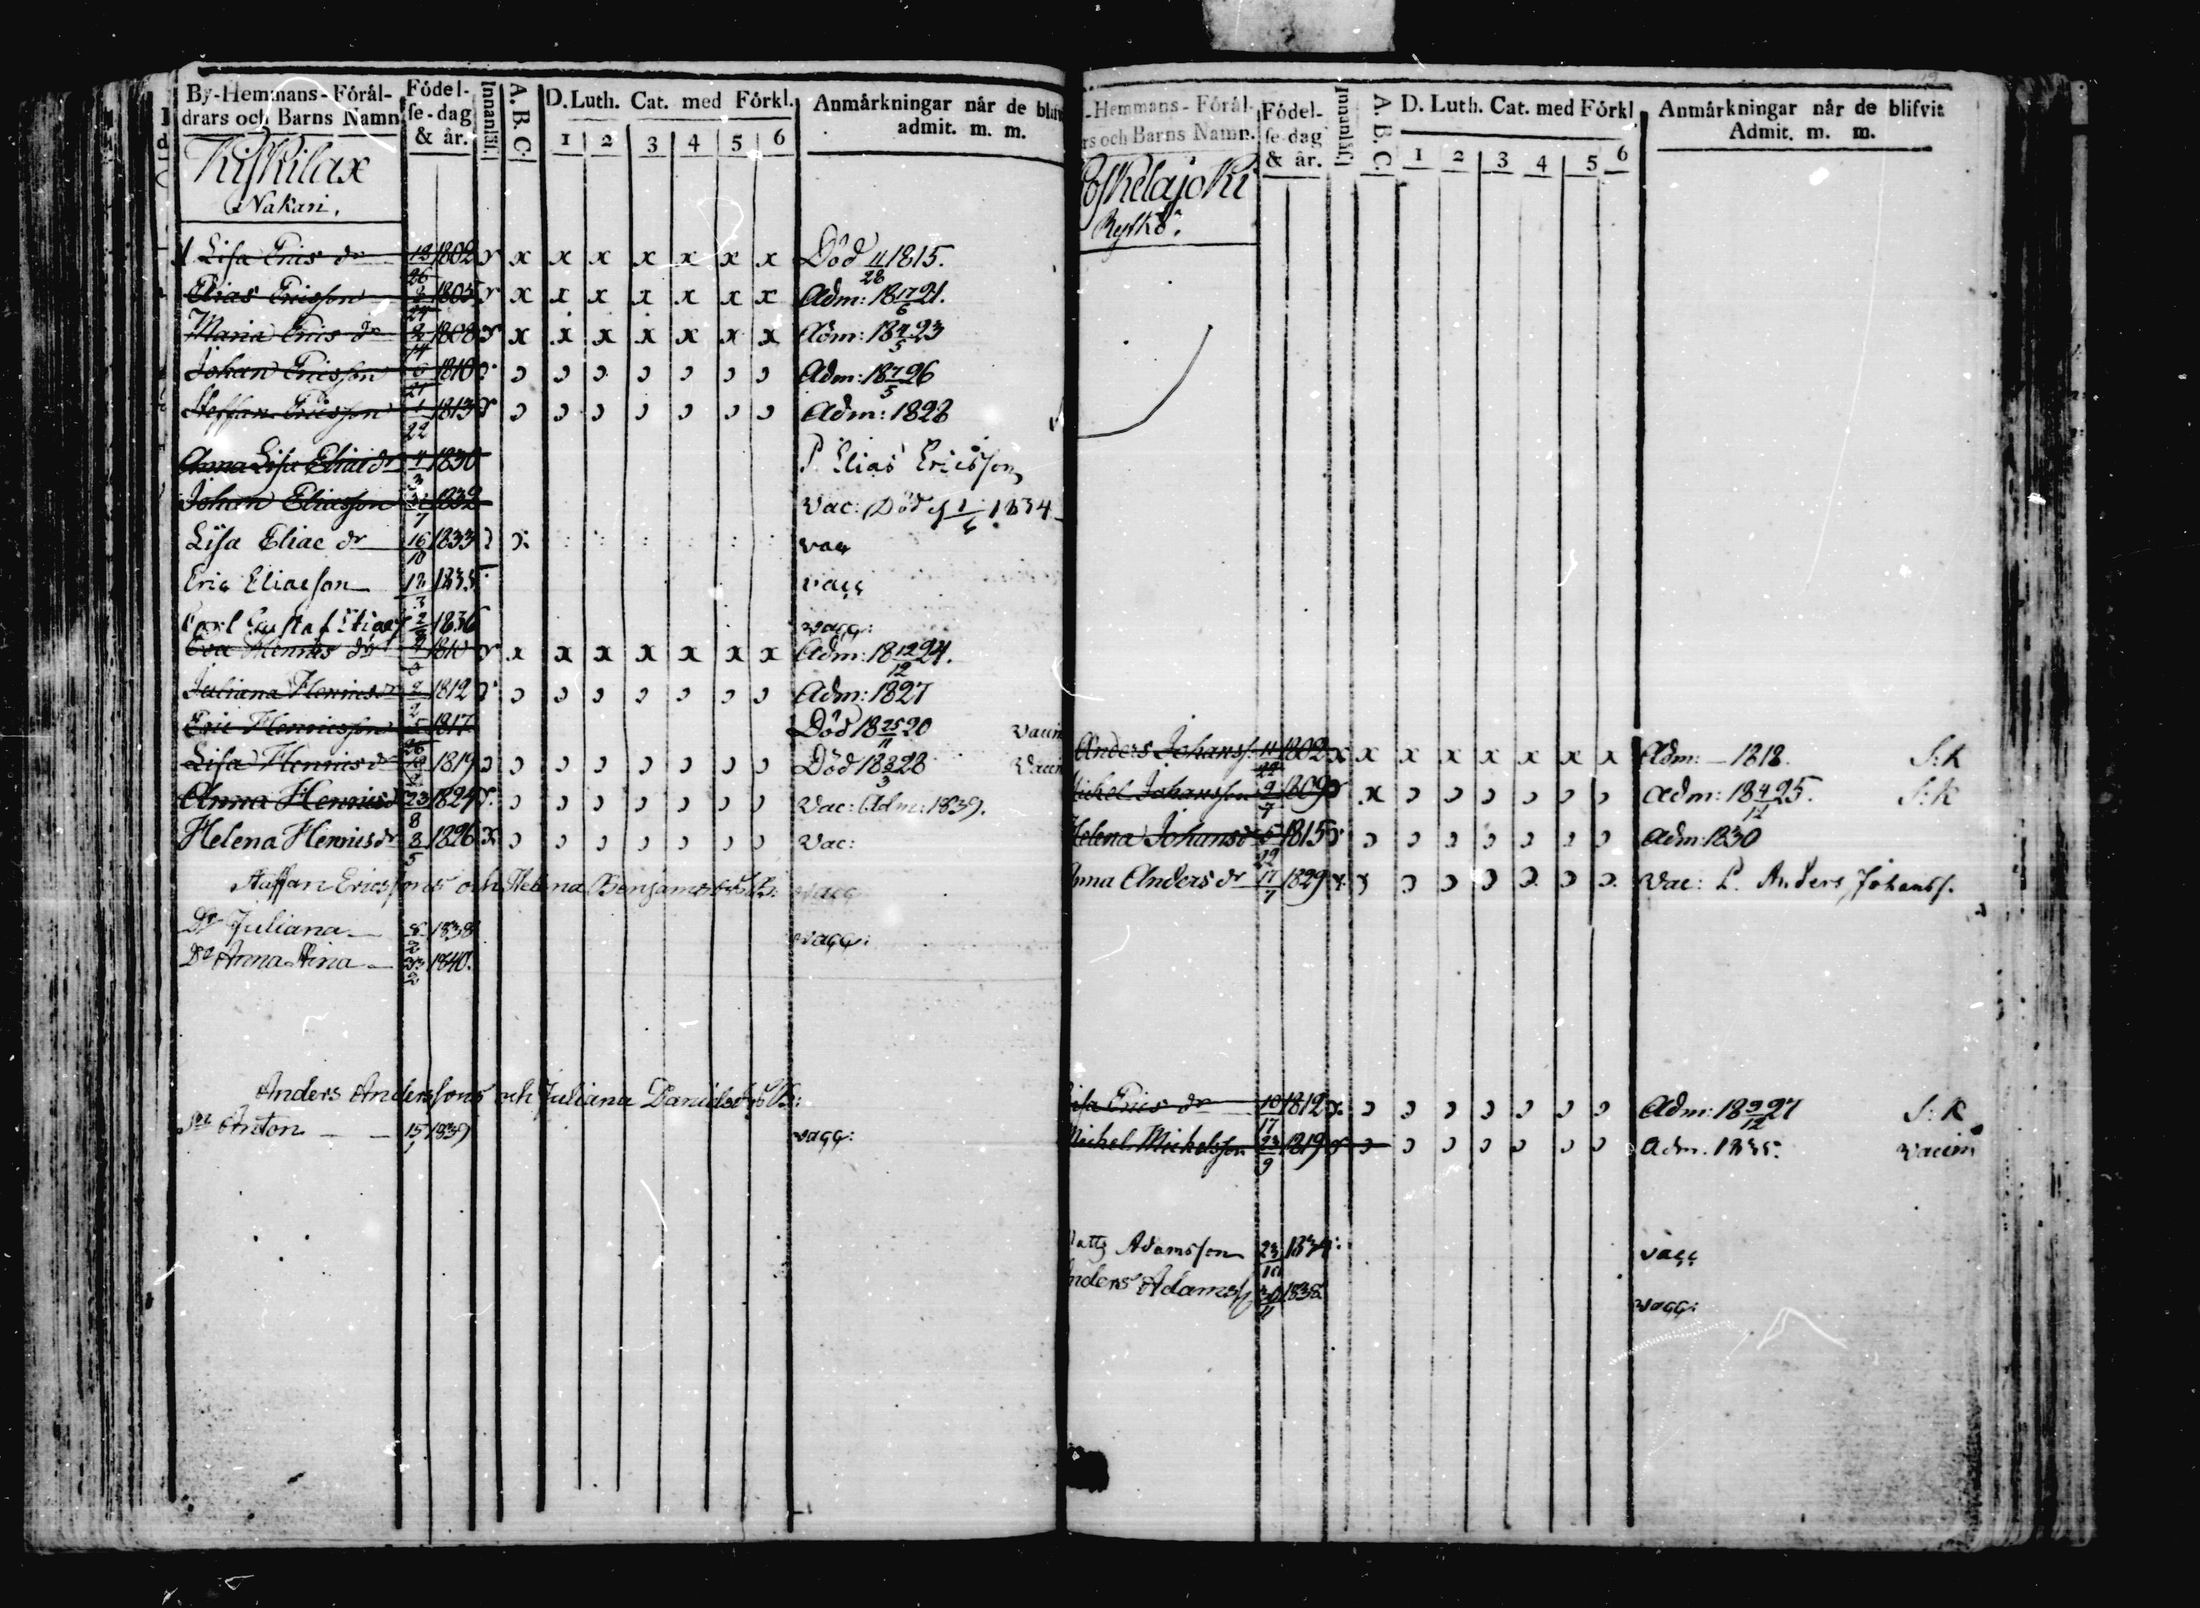 By-Hemmans-Föräl-
drars och Barns Namn
Födel-
se-dag
& år.
Innanläs.
A. B. C.
D. Luth. Cat. med Förkl.
1 2 3 4 5 6
Anmärkningar når de
admit. m. m.
Kiskilax
Nakari.
Lisa Erics dr 1802 x x x x x x x Död 11/28 1815.
Elias Ericsson 1805 x x x x x x x Adm: 18 17/6 21.
Maria Erics dr 1808 x x x x x x x Adm: 18 4/5 23
Johan Ericsson 1810 Adm: 18 7/5 26
Steffan Ericsson 1813 Adm: 1828
Anna Lisa Eliae dr 4/3 1830 P. Elias Ericsson
Johan Eliasson 1832 Vac: Död 1/6 1834
Lisa Eliae dr 16/10 1833 vac
Eric Eliaeson 12/3 1835 vacc
Carl Gustaf 1836 vacc:
Eva Henrics dr 1810 x x x x x x x Adm: 18 12/12 24.
Juliana Henricsdr 1812 Adm: 1827
Eric Henricsson 1817 Död 18 25/11 20
Lisa Henricsdr 1819 Död 18 2/3 28
Anna Henricsdr 23/8 1824 Vac: Adm: 1839.
Helena Henricsdr 8/5 1826 Vac:
Staffan Ericssons och Helena
Dr Juliana 1838 vacc:
Dr Anna Stina 1840.
Anders Anderssons och Juliana Danielsdr
Anton 15 1839 vacc:
-Hemmans-Föräl-
rs och Barns Namn.
Födel-
se-dag
& år.
Innanläs.
A. B. C.
D. Luth. Cat. med Förkl
1 2 3 4 5 6
Anmärkningar når de blifvit
Admit. m. m.
Rytkö.
Anders Johanss. 1802 x x x x x x x x Adm: 1818. S:k
Michel Johansson 9/7 1809 x Adm: 18 4/12 25. S:k
Helena Johansdr 1815 Adm: 1830
Anna Anders dr 17/7 1829 Vac: P. Anders Johanss.
Lisa Erics dr 10/17 1812 Adm: 18 9/12 27 S:k
Michel Michelsson 23/9 1819 Adm. 1835. Vaccin
Matts Adamsson 23/10 1834 vacc
Anders Adamss 30/11 1838 vacc: